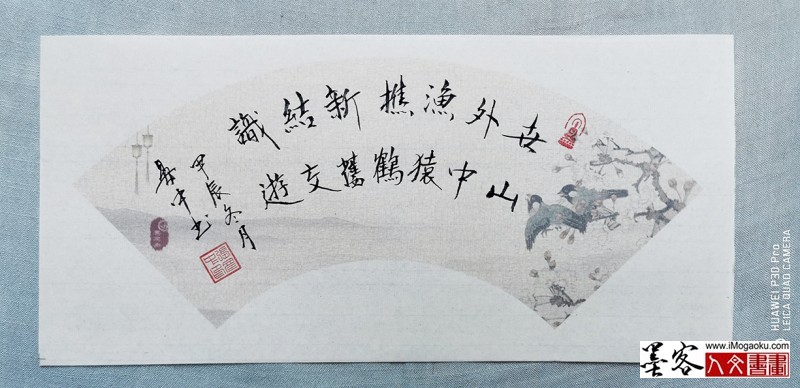 世外漁樵新結識
山中猿鶴舊交遊
甲辰冬月
書
墨客人文書畫
www.iMogaoku.com
HUAWEI P30 Pro
LEICA QUAD CAMERA